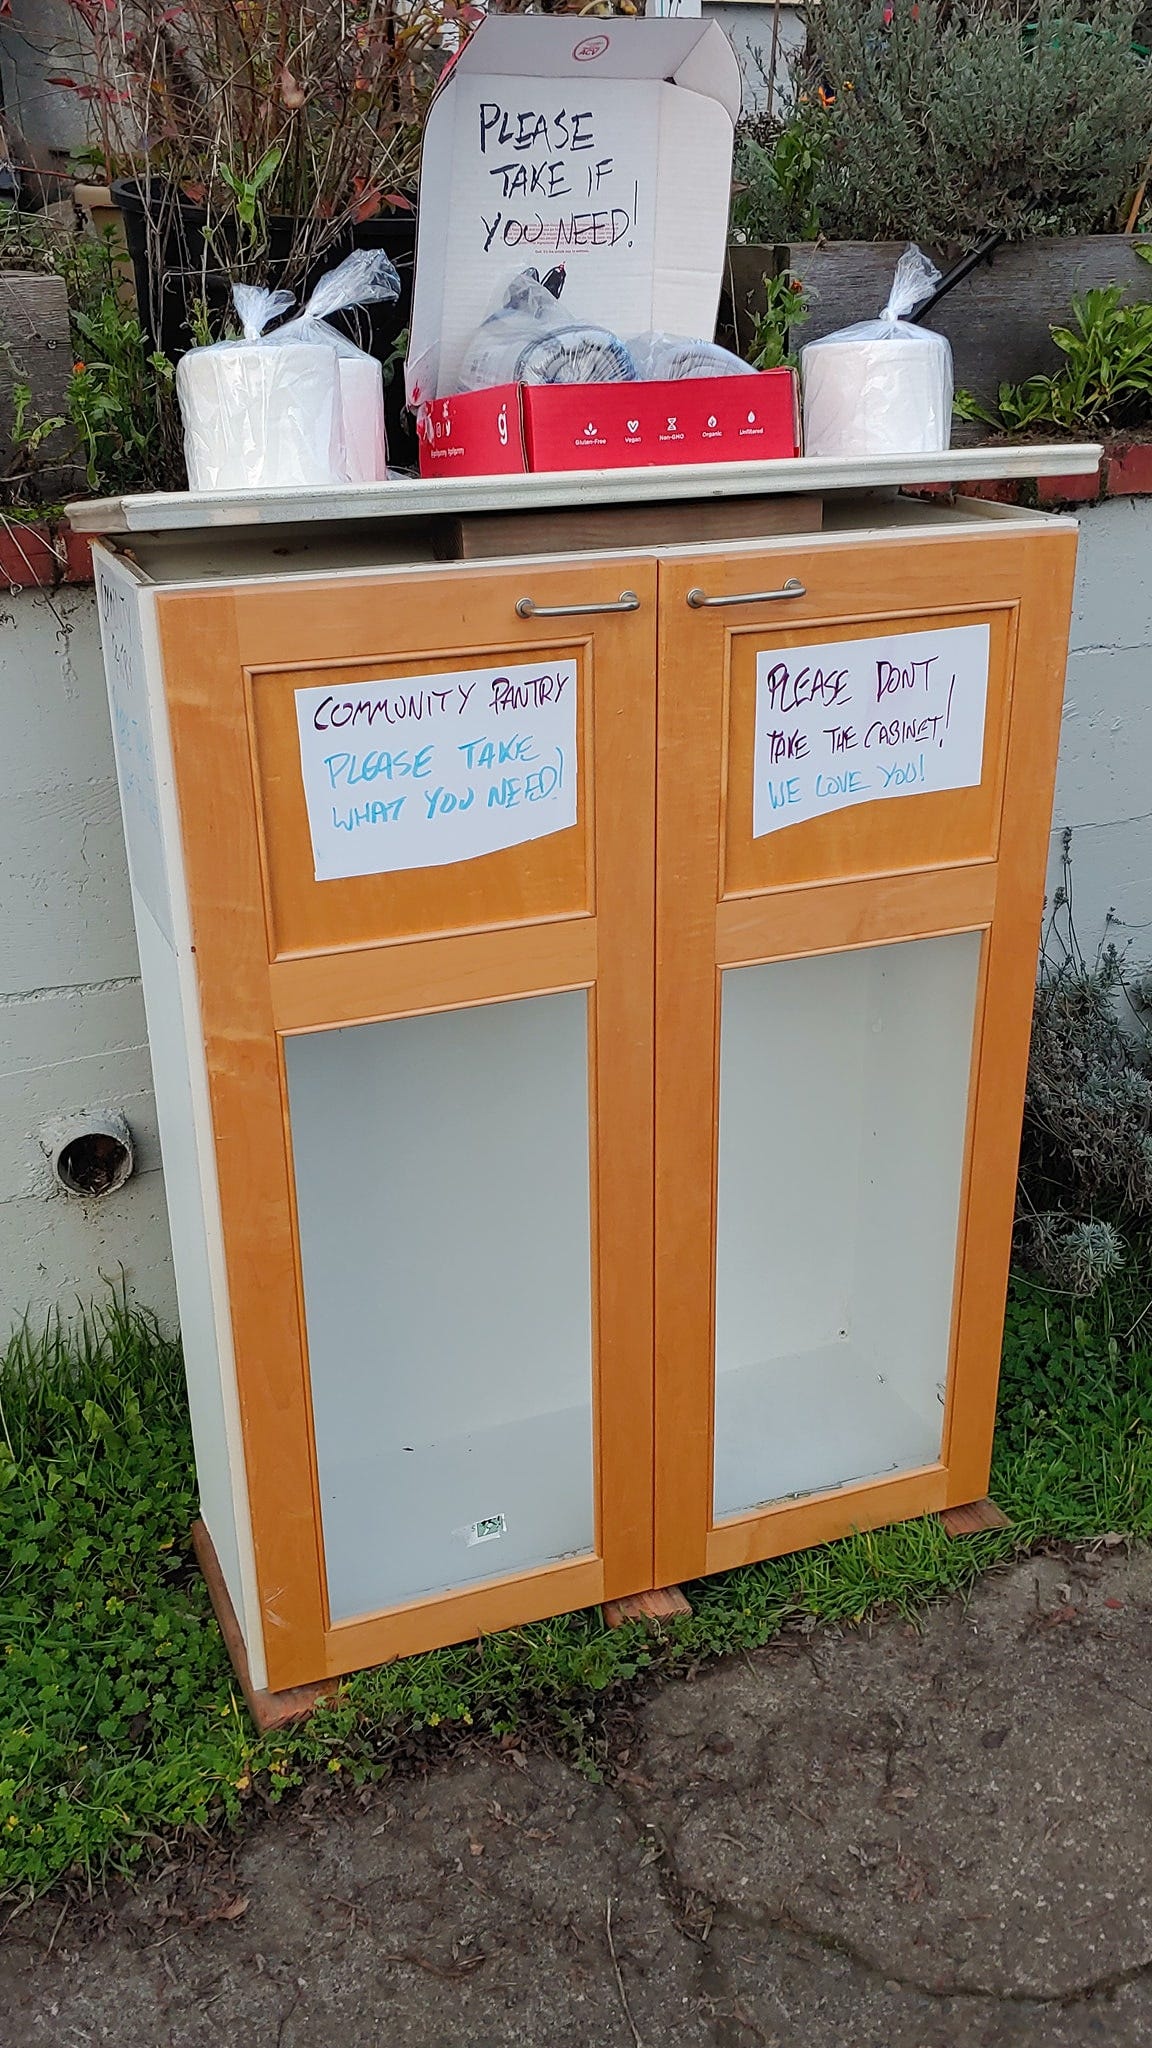 ACV
PLEASE
TAKE IF
YOU NEED!
g
Gluten-Free
Vegan
Non-GMO
Organic
Unfiltered
COMMUNITY PANTRY
PLEASE TAKE
WHAT YOU NEED!
PLEASE DONT
TAKE THE CABINET!
WE LOVE YOU!